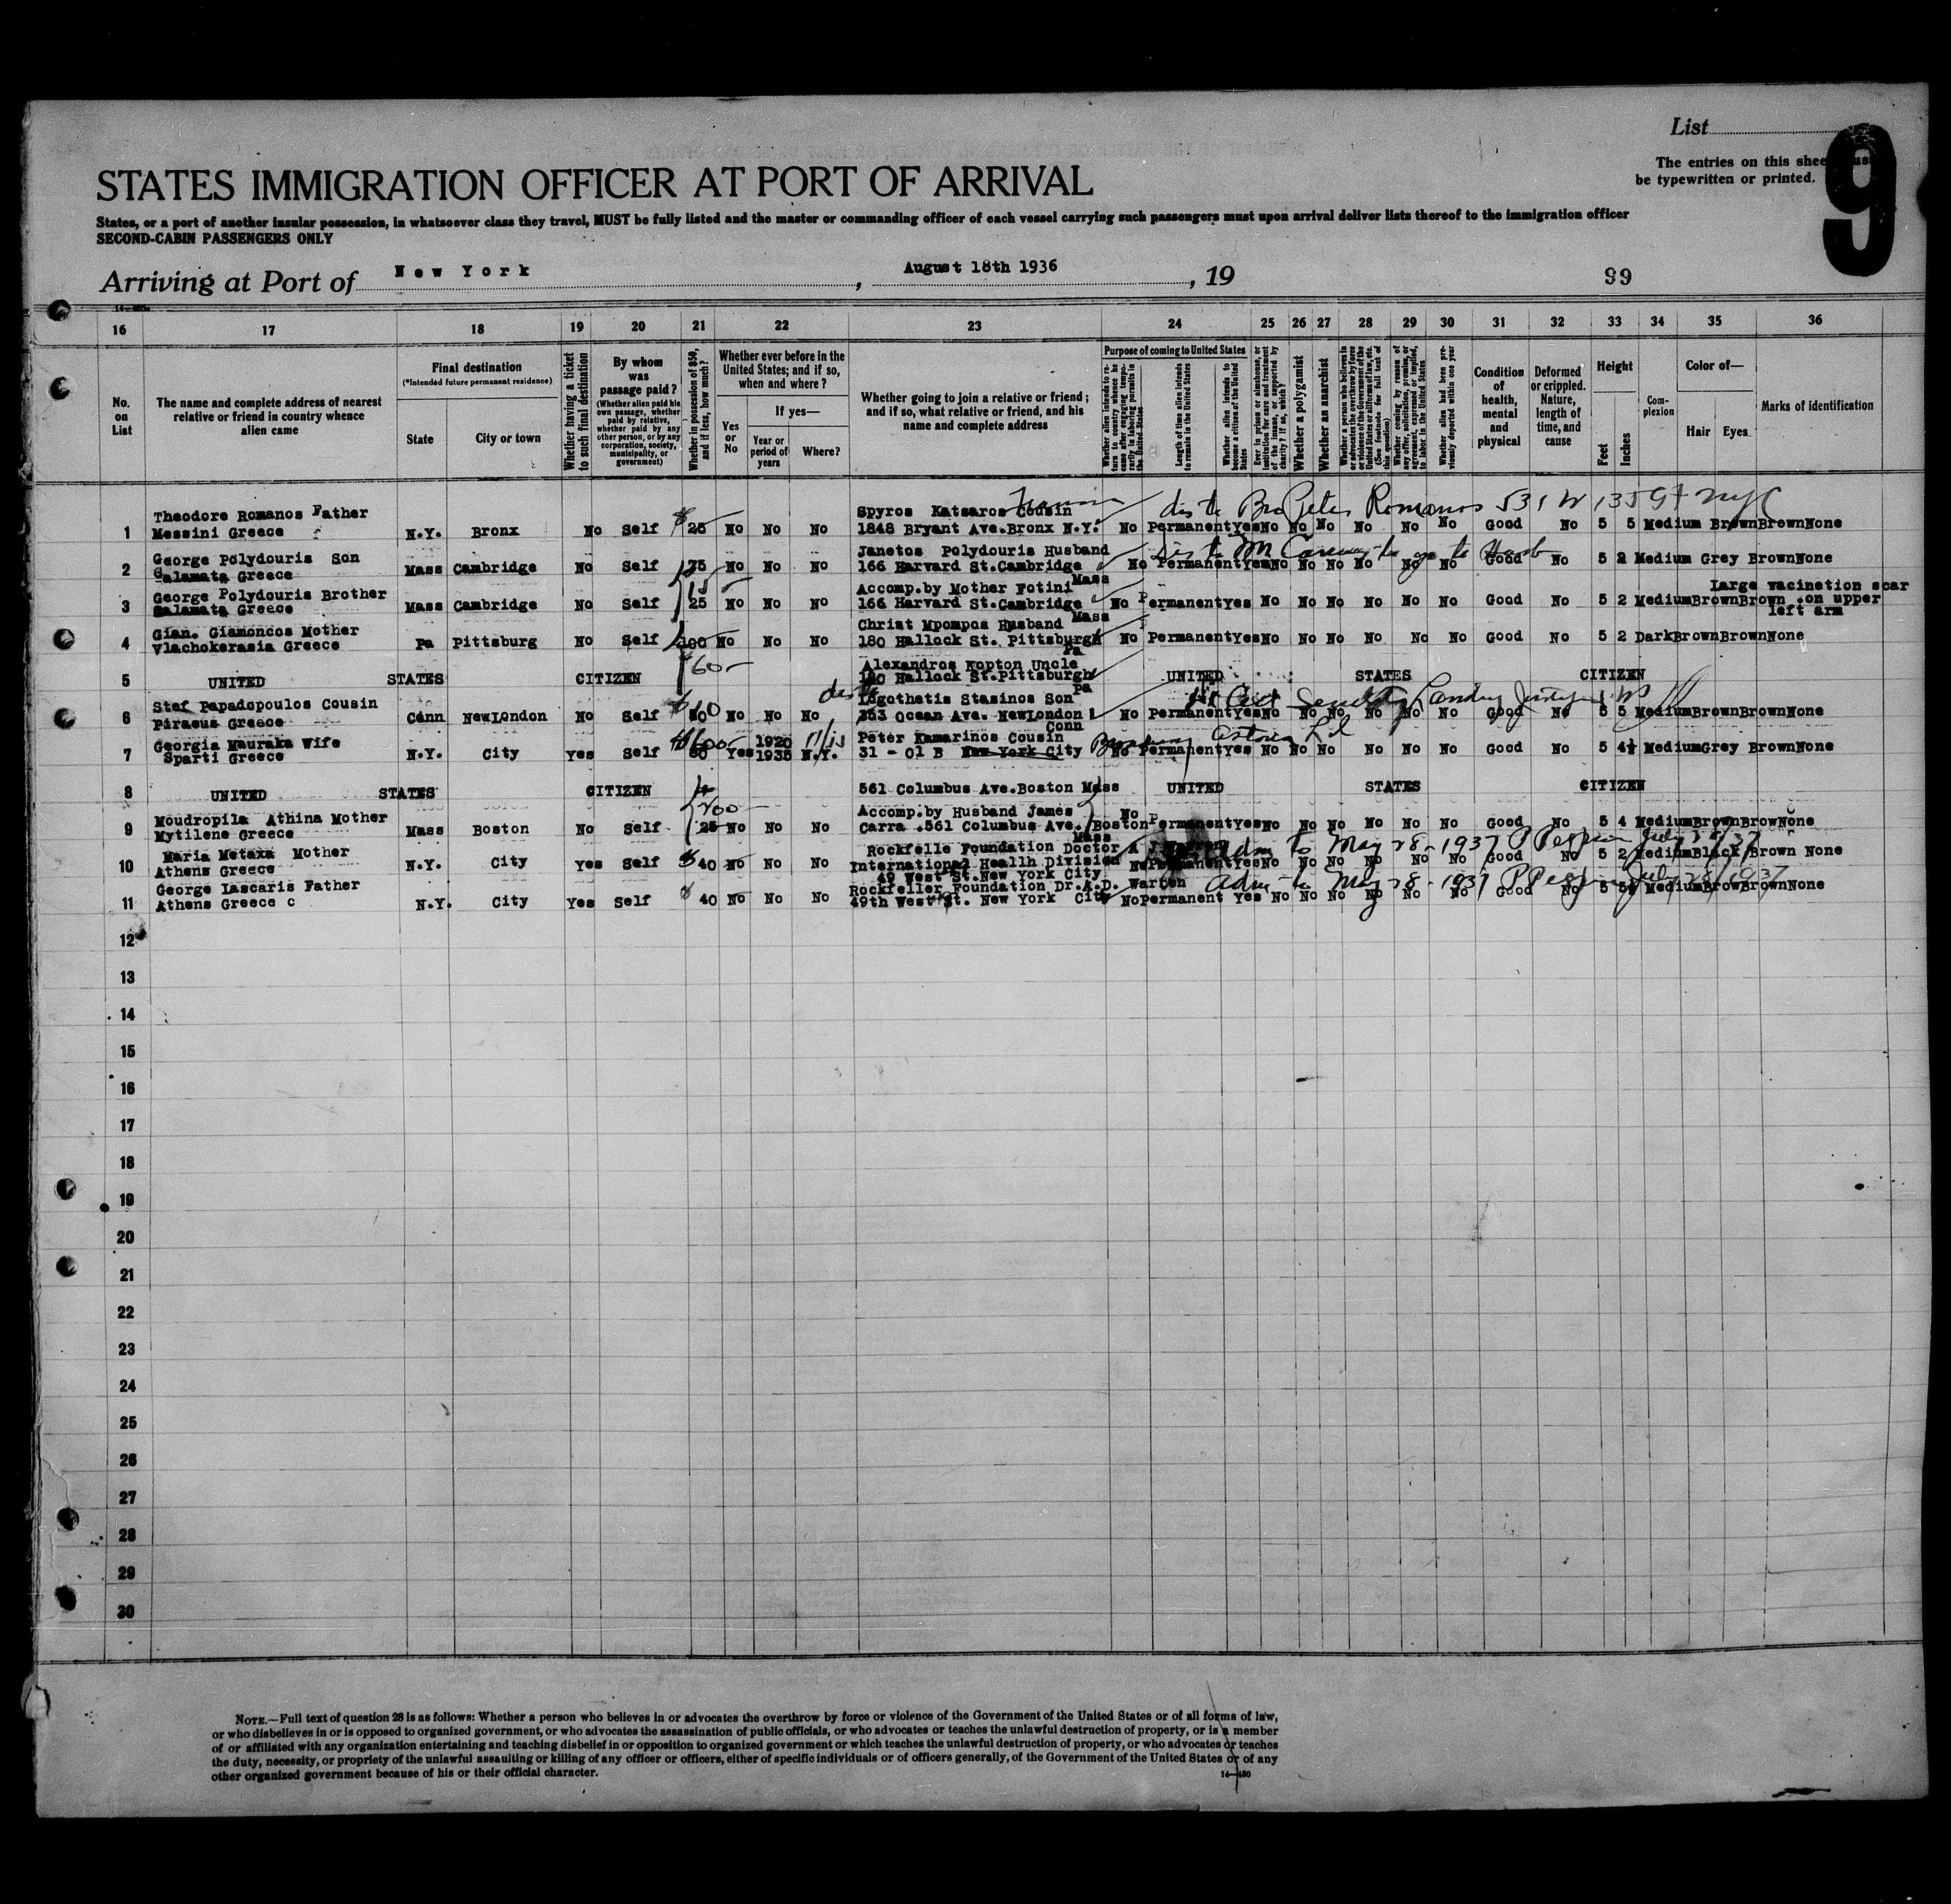 List
9
The entries on this sheet must
be typewritten or printed.
STATES IMMIGRATION OFFICER AT PORT OF ARRIVAL
States, or a port of another insular possession, in whatsoever class they travel, MUST be fully listed and the master or commanding officer of each vessel carrying such passengers must upon arrival deliver lists thereof to the immigration officer
SECOND-CABIN PASSENGERS ONLY
Arriving at Port of New York, August 18th 1936, 19 99
16 17 18 19 20 21 22 23 24 25 26 27 28 29 30 31 32 33 34 35 36
No. on List
The name and complete address of nearest relative or friend in country whence alien came
Final destination
(*Intended future permanent residence)
State
City or town
Whether having a ticket to such final destination
By whom was passage paid?
(Whether alien paid his own passage, whether paid by relative, whether paid by any other person, or by any corporation, society, municipality, or government)
Whether in possession of $50, and if less, how much?
Whether ever before in the United States; and if so, when and where?
Yes or No
If yes—
Year or period of years
Where?
Whether going to join a relative or friend; and if so, what relative or friend, and his name and complete address
Purpose of coming to United States
Whether alien intends to return to country whence he came after engaging temporarily in laboring pursuits in the United States
Length of time alien intends to remain in the United States
Whether alien intends to become a citizen of the United States
Ever in prison or almshouse, or institution for care and treatment of the insane, or supported by charity? If so, which?
Whether a polygamist
Whether an anarchist
Whether a person who believes in or advocates the overthrow by force or violence of the Government of the United States or all forms of law, etc. (See footnote for full text of this question)
Whether coming by reason of any offer, solicitation, promise, or agreement, expressed or implied, to labor in the United States
Whether alien had been previously deported within one year
Condition of health, mental and physical
Deformed or crippled. Nature, length of time, and cause
Height
Feet
Inches
Complexion
Color of—
Hair Eyes
Marks of identification
dis to Bro Peter Romanos 531 W 135 St NYC
Theodore Romanos Father Spyros Katsaros Cousin
1 Messini Greece N.Y. Bronx No Self $ 25 No No No 1848 Bryant Ave.Bronx N.Y. No Permanent Yes No No No No No No Good No 5 5 Medium Brown Brown None
George Polydouris Son Janetos Polydouris Husband
2 Calamata Greece Mass Cambridge No Self 75 No No No 166 Harvard St.Cambridge Mass No Permanent Yes No No No No No No Good No 5 2 Medium Grey Brown None
George Polydouris Brother Accomp.by Mother Fotini Large vacination scar
3 Calamata Greece Mass Cambridge No Self 25 No No No 166 Harvard St.Cambridge Mass No Permanent Yes No No No No No No Good No 5 2 Medium Brown Brown on upper left arm
Gian. Giamoncos Mother Christ Mpompos Husband
4 Vlachokerasia Greece Pa Pittsburg No Self 100 No No No 180 Hallock St. Pittsburgh Pa No Permanent Yes No No No No No No Good No 5 2 Dark Brown Brown None
$60- Alexandros Kopton Uncle
5 UNITED STATES CITIZEN 180 Hallock St.Pittsburgh Pa UNITED STATES CITIZEN
Stef Papadopoulos Cousin Logothetis Stasinos Son
6 Piraeus Greece Conn NewLondon No Self 60 No No No 253 Ocean Ave. NewLondon Conn No Permanent Yes No No No No No No Good No 5 5 Medium Brown Brown None
Georgia Mauraka Wife 1920 Peter Kamarinos Cousin Astoria L.I.
7 Sparti Greece N.Y. City Yes Self 50 Yes 1935 N.Y. 31 - 01 B New York City No Permanent Yes No No No No No No Good No 5 4½ Medium Grey Brown None
8 UNITED STATES CITIZEN 561 Columbus Ave.Boston Mass UNITED STATES CITIZEN
Moudropila Athina Mother 200- Accomp.by Husband James
9 Mytilene Greece Mass Boston No Self 25 No No No Carra .561 Columbus Ave. Boston Mass No Permanent Yes No No No No No No Good No 5 4 Medium Brown Brow None
Maria Metaxa Mother Rockfelle Foundation Doctor adm to May 28-1937 July 28/37
10 Athens Greece N.Y. City Yes Self $ 40 No No No International Health Division No Permanent Yes No No No No No No Good No 5 2 Medium Black Brown None
49 West St.New York City
George Lascaris Father Rockfeller Foundation Dr.A.D. Warren adm to May 28-1937 July 28/1937
11 Athens Greece N.Y. City Yes Self $ 40 No No No 49th West St. New York City No Permanent Yes No No No No No No Good No 5 5 Medium Brown Brown None
12
13
14
15
16
17
18
19
20
21
22
23
24
25
26
27
28
29
30
NOTE.—Full text of question 28 is as follows: Whether a person who believes in or advocates the overthrow by force or violence of the Government of the United States or of all forms of law,
or who disbelieves in or is opposed to organized government, or who advocates the assassination of public officials, or who advocates or teaches the unlawful destruction of property, or is a member
of or affiliated with any organization entertaining and teaching disbelief in or opposition to organized government or which teaches the unlawful destruction of property, or who advocates or teaches
the duty, necessity, or propriety of the unlawful assaulting or killing of any officer or officers, either of specific individuals or of officers generally, of the Government of the United States or of any
other organized government because of his or their official character.
14—480